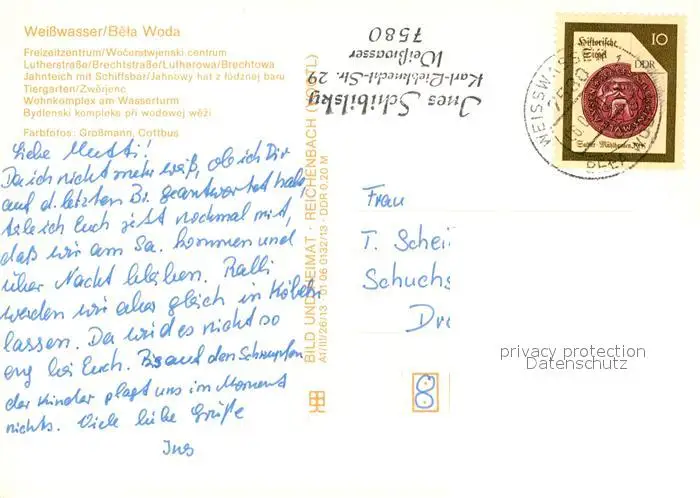 Weißwasser/Běła Woda
Freizeitzentrum/Wočerstwjenski centrum
Lutherstraße/Brechtstraße/Lutherowa/Brechtowa
Jahnteich mit Schiffsbar/Jahnowy hat z łódznej baru
Tiergarten/Zwěrjenc
Wohnkomplex am Wasserturm
Bydlenski kompleks při wodowej wěži
Farbfotos: Großmann, Cottbus
Liebe Mutti!
Da ich nicht mehr weiß, ob ich Dir
auf d. letzten Br. geantwortet habe,
teile ich Euch jetzt nochmal mit,
daß wir am Sa. kommen und
über Nacht bleiben. Ralli
werden wir aber gleich in
lassen. Da wird es nicht so
eng bei Euch. Bis auf den Schnupfen
der Kinder plagt uns im Moment
nichts. Viele liebe Grüße
Ines
BILD UND HEIMAT · REICHENBACH (VOGTL)
A1/III/26/13 · 01 06 0132/13 · DDR 0,20 M
Ines Schibilsky
Karl-Liebknecht-Str. 29
Weißwasser
7580
Historische
Siegel
10
DDR
WEISSWASSER
7580
BĚŁA WODA
Frau
T. Schei
Schuchs
Dre
8
privacy protection
Datenschutz